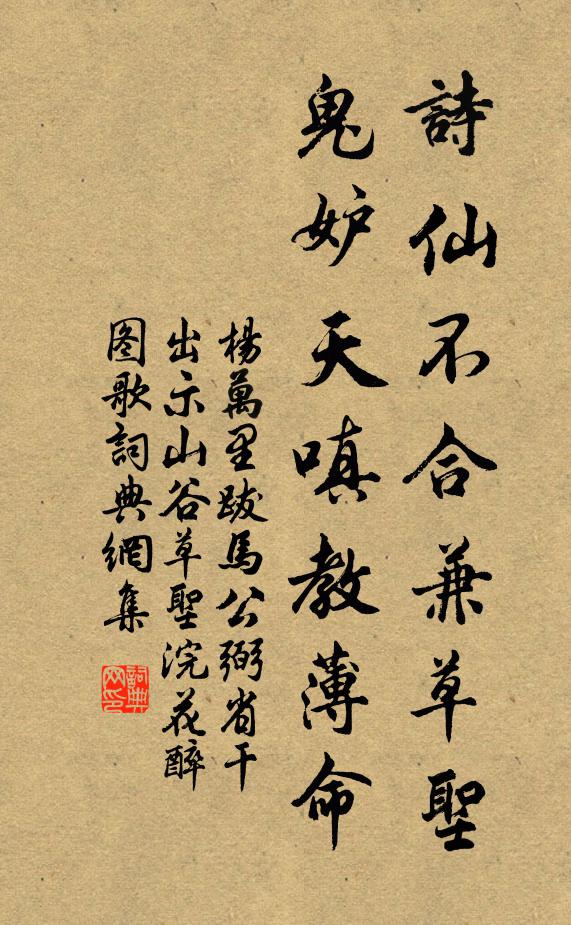 詩仙不合兼草聖
鬼妒天嗔教薄命
楊萬里跋馬公弼省干
出示山谷草聖浣花醉
图歌詞典網集
詞典
网印